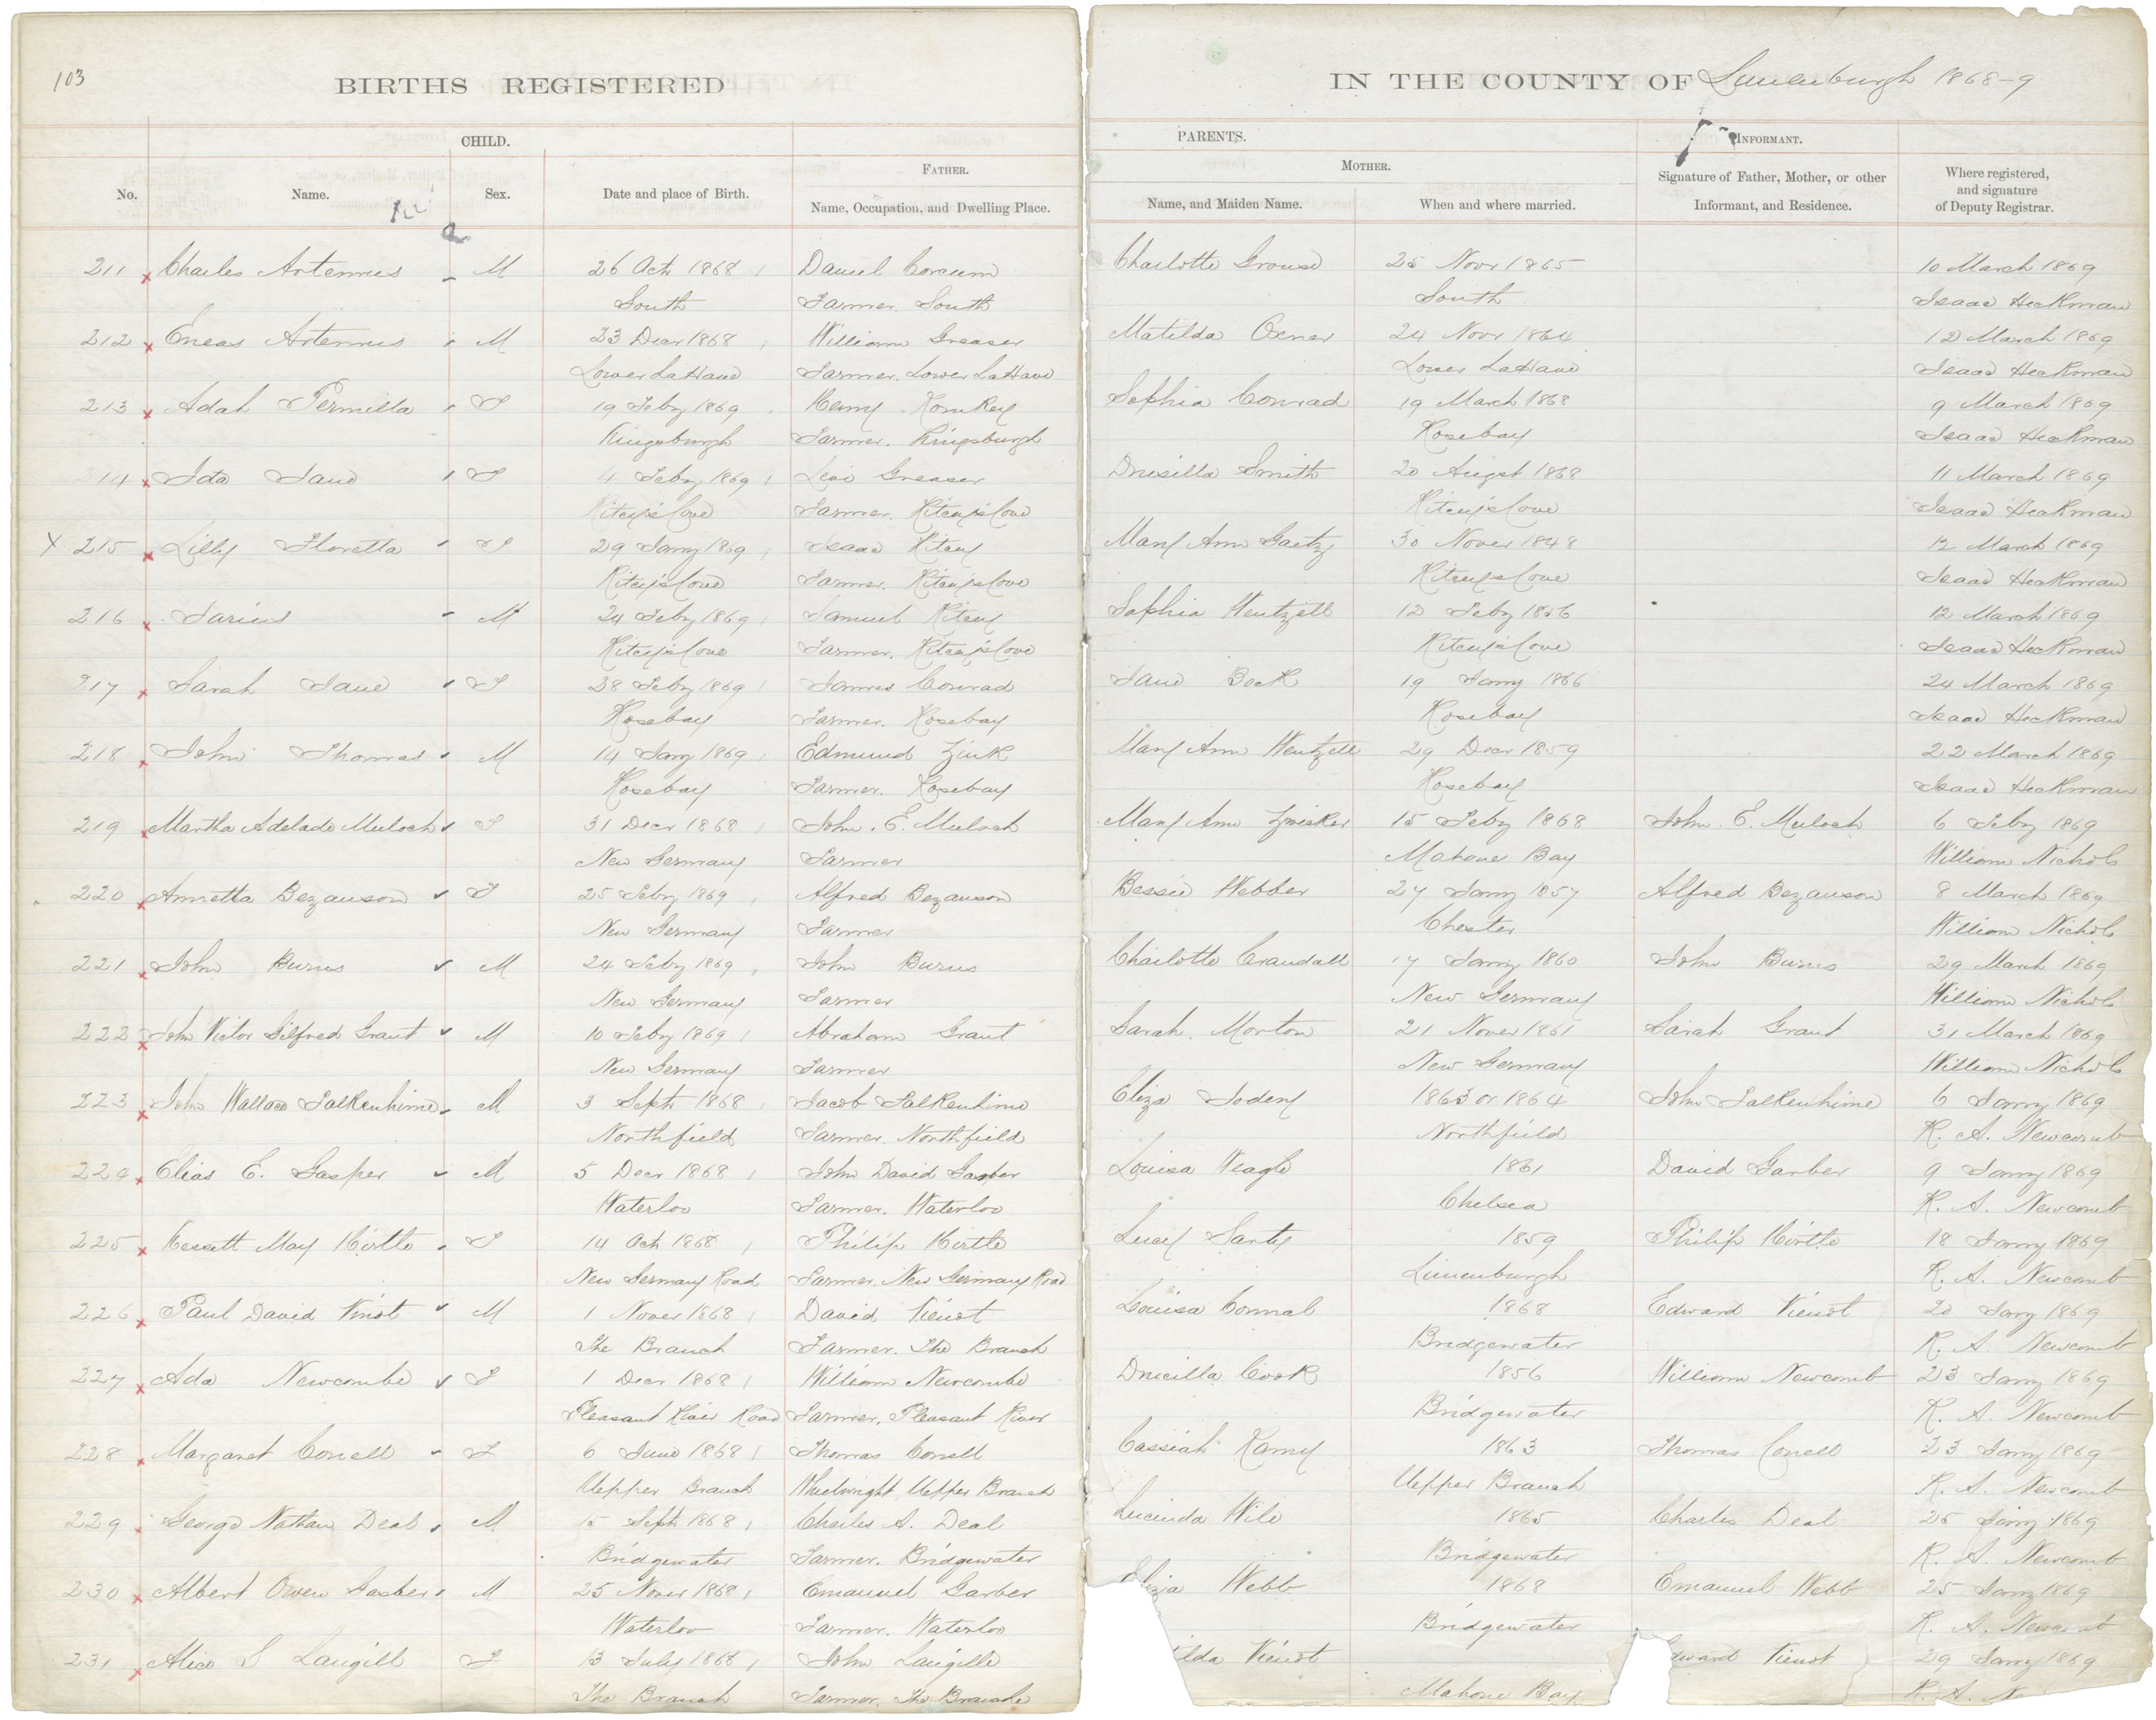 103
BIRTHS REGISTERED IN THE COUNTY OF Lunenburgh 1868-9
CHILD. PARENTS. INFORMANT.
FATHER. MOTHER.
No. Name. Sex. Date and place of Birth. Name, Occupation, and Dwelling Place. Name, and Maiden Name. When and where married. Signature of Father, Mother, or other Informant, and Residence. Where registered, and signature of Deputy Registrar.
211 Charles Artemus M 26 Octr 1868 Daniel Corcum Charlotte Grouse 25 Novr 1865 10 March 1869
South Farmer. South South Isaac Heckman
212 Eneas Artemus M 23 Decr 1868 William Greaser Matilda Oxner 24 Novr 1864 12 March 1869
Lower LaHave Farmer. Lower LaHave Lower LaHave Isaac Heckman
213 Adah Permilla F 19 Feby 1869 Henry Romkey Sophia Conrad 19 March 1868 9 March 1869
Kingsburgh Farmer. Kingsburgh Rosebay Isaac Heckman
214 Ida Jane F 4 Feby 1869 Levi Greaser Drusilla Smith 20 Augst 1868 11 March 1869
Ritcey's Cove Farmer. Ritcey's Cove Ritcey's Cove Isaac Heckman
X 215 Lilly Floretta F 29 Jany 1869 Isaac Ritcey Mary Ann Gaetz 30 Nover 1848 12 March 1869
Ritcey's Cove Farmer. Ritcey's Cove Ritcey's Cove Isaac Heckman
216 Darius M 24 Feby 1869 Samuel Ritcey Sophia Wentzell 12 Feby 1856 12 March 1869
Ritcey's Cove Farmer. Ritcey's Cove Ritcey's Cove Isaac Heckman
217 Sarah Jane F 28 Feby 1869 James Conrad Jane Bock 19 Jany 1866 24 March 1869
Rosebay Farmer. Rosebay Rosebay Isaac Heckman
218 John Thomas M 14 Jany 1869 Edmund Zink Mary Ann Wentzell 29 Decr 1859 22 March 1869
Rosebay Farmer. Rosebay Rosebay Isaac Heckman
219 Martha Adelade Muloch F 31 Decr 1868 John. E. Muloch Mary Ann Zwicker 15 Feby 1868 John. E. Muloch 6 Feby 1869
New Germany Farmer Mahone Bay William Nichols
220 Annetta Bezanson F 25 Feby 1869 Alfred Bezanson Bessie Webber 27 Jany 1857 Alfred Bezanson 8 March 1869
New Germany Farmer Chester William Nichols
221 John Burns M 24 Feby 1869 John Burns Charlotte Crandall 17 Jany 1860 John Burns 29 March 1869
New Germany Farmer New Germany William Nichols
222 John Victor Gilfred Grant M 10 Feby 1869 Abraham Grant Sarah Morton 21 Nover 1861 Sarah Grant 31 March 1869
New Germany Farmer New Germany William Nichols
223 John Wallace Falkenhime M 3 Septr 1868 Jacob Falkenhime Eliza Jodery 1863 or 1864 John Falkenhime 6 Jany 1869
Northfield Farmer. Northfield Northfield R. A. Newcomb
224 Elias E. Gasper M 5 Decr 1868 John David Garber Louisa Veagle 1861 David Garber 9 Jany 1869
Waterloo Farmer. Waterloo Chelsea R. A. Newcomb
225 Hessett May Hirtle F 14 Oct 1868 Philip Hirtle Lucy Santy 1859 Philip Hirtle 18 Jany 1869
New Germany Road Farmer. New Germany Road Lunenburgh R. A. Newcomb
226 Paul David Vinot M 1 Nover 1868 David Vienot Louisa Connal 1868 Edward Vienot 20 Jany 1869
The Branch Farmer. The Branch Bridgewater R. A. Newcomb
227 Ada Newcombe F 1 Decr 1868 William Newcombe Drucilla Cook 1856 William Newcomb 23 Jany 1869
Pleasant River Road Farmer. Pleasant River Bridgewater R. A. Newcomb
228 Margaret Conell F 6 June 1868 Thomas Conell Cassiah Ramy 1863 Thomas Conell 23 Jany 1869
Uepper Branch Wheelwright Uepper Branch Uepper Branch R. A. Newcomb
229 George Nathan Deal M 15 Septr 1868 Charles A. Deal Lucinda Wile 1865 Charles Deal 25 Jany 1869
Bridgewater Farmer. Bridgewater Bridgewater R. A. Newcomb
230 Albert Owen Garber M 25 Nover 1868 Emanuel Garber Eliza Webb 1868 Emanuel Webb 25 Jany 1869
Waterloo Farmer. Waterloo Bridgewater R. A.
231 Alice S Langill F 13 July 1868 John Langille ilda Vienot dward Vienot 29 Jany 1869
The Branch Farmer. The Branche Mahone Bay R. A. N